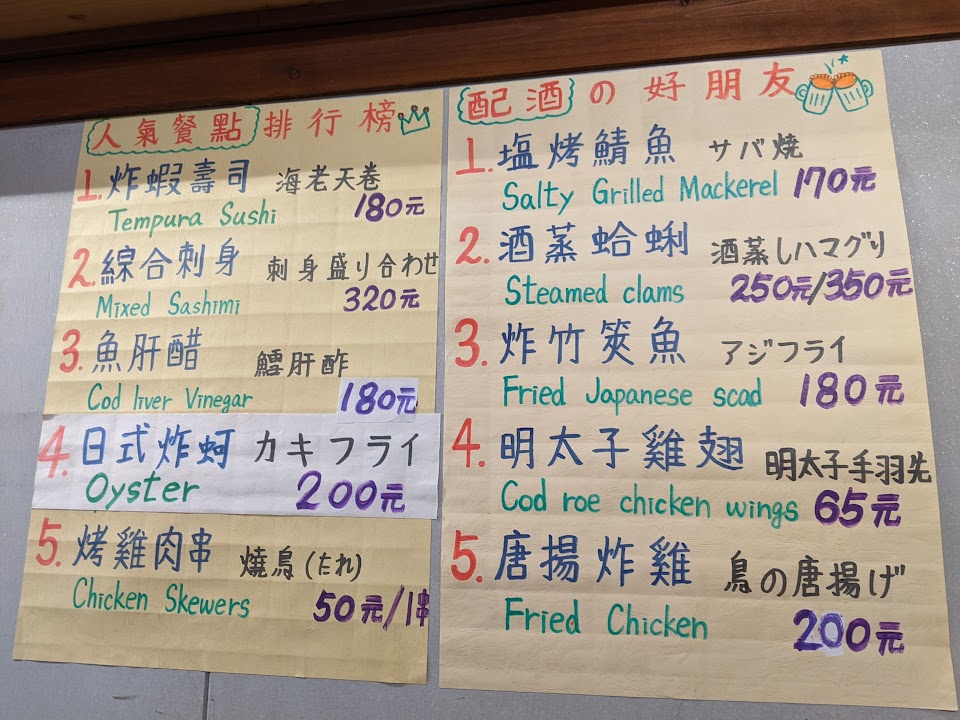 人氣餐點排行榜
1. 炸蝦壽司 海老天卷
Tempura Sushi 180元
2. 綜合刺身 刺身盛り合わせ
Mixed Sashimi 320元
3. 魚肝醋 鱈肝酢
Cod liver Vinegar 180元
4. 日式炸蚵 カキフライ
Oyster 200元
5. 烤雞肉串 燒鳥(たれ)
Chicken Skewers 50元/1串
配酒の好朋友
1. 塩烤鯖魚 サバ焼
Salty Grilled Mackerel 170元
2. 酒蒸蛤蜊 酒蒸しハマグリ
Steamed clams 250元/350元
3. 炸竹筴魚 アジフライ
Fried Japanese scad 180元
4. 明太子雞翅 明太子手羽先
Cod roe chicken wings 65元
5. 唐揚炸雞 鳥の唐揚げ
Fried Chicken 200元